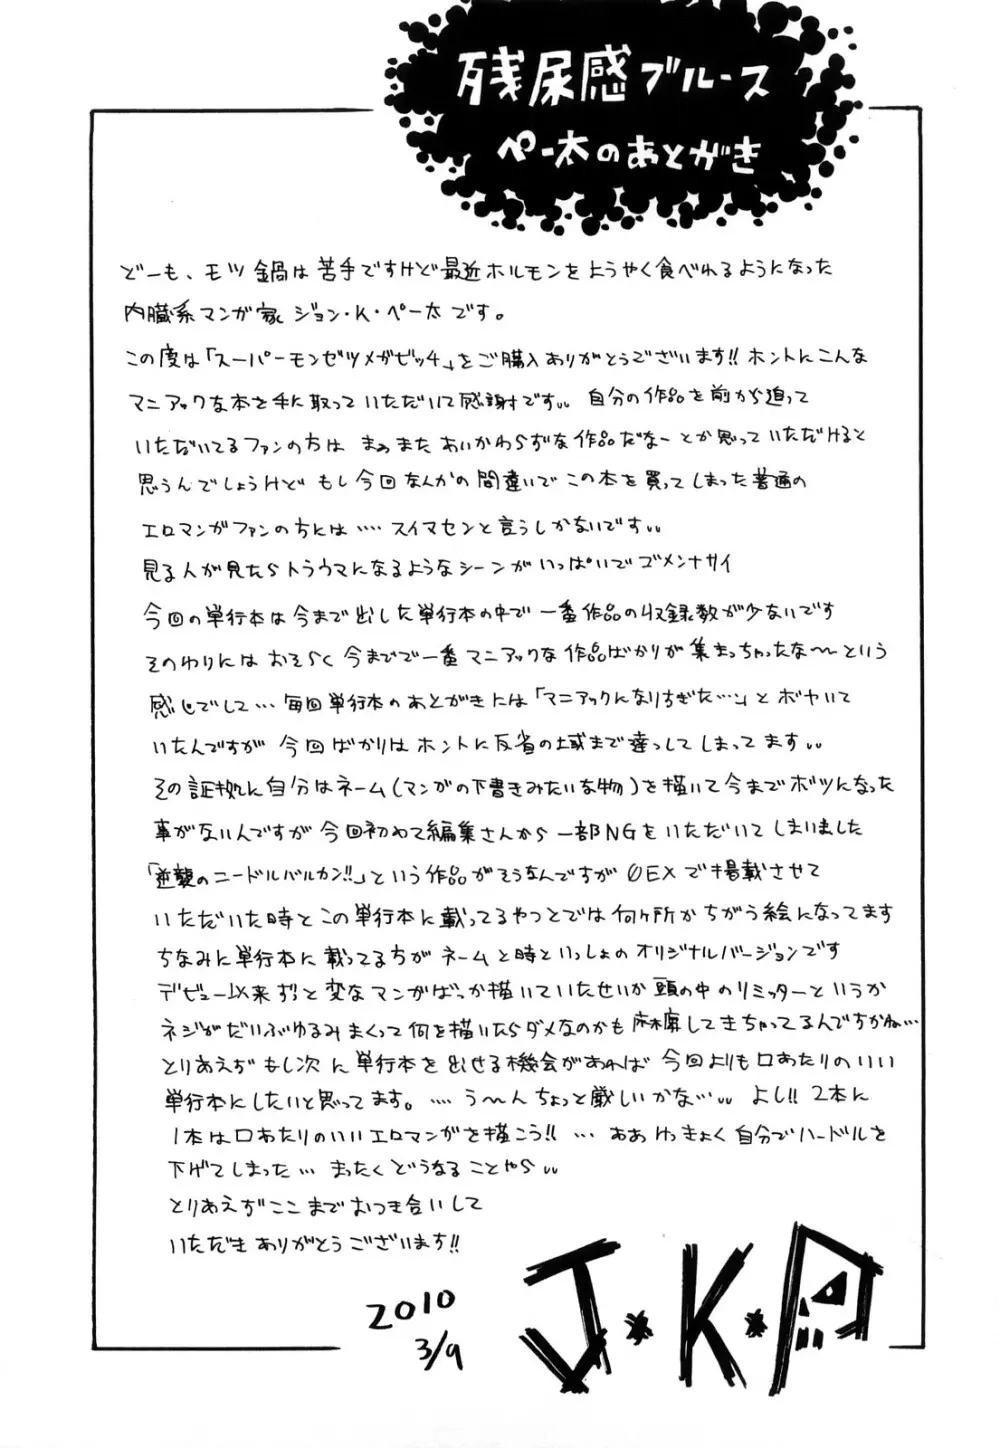 残尿感ブルース
ペー太のあとがき
どーも、モツ鍋は苦手ですけど最近ホルモンをようやく食べれるようになった
内臓系マンガ家 ジョン・K・ペー太です。
この度は「スーパーモンゼツメガビッチ」をご購入ありがとうございます!! ホントにこんな
マニアックな本を手に取っていただいて感謝です。。 自分の作品を前から追って
いただいてるファンの方は まぁまた あいかわらずな作品だなーとか思っていただけると
思うんでしょうけど もし今回なんかの間違いで この本を買ってしまった普通の
エロマンガファンの方には ‥‥ スイマセンと言うしかないです。。
見る人が見たらトラウマになるようなシーンがいっぱいでゴメンナサイ
今回の単行本は今まで出した単行本の中で 一番作品の収録数が少ないです
そのわりには おそらく 今までで一番マニアックな作品ばかりが集まっちゃったな〜という
感じでして… 毎回単行本のあとがきには「マニアックになりすぎた…」と ボヤいて
いたんですが 今回ばかりは ホントに反省の域まで達っしてしまってます。。
その証拠に自分はネーム(マンガの下書きみたいな物)を描いて今までボツになった
事がないんですが 今回初めて編集さんから 一部NGをいただいてしまいました
「逆襲のニードルバルカン!!」という作品がそうなんですが OEXで掲載させて
いただいた時と この単行本に載ってるやつとでは 何ヶ所かちがう絵になってます
ちなみに単行本に載ってる方がネームと時といっしょのオリジナルバージョンです
デビュー以来ずっと変なマンガばっか描いていたせいか 頭の中のリミッターというか
ネジがだいぶゆるみまくって何を描いたらダメなのかも麻痺してきちゃってるんですかね…
とりあえず もし次に単行本を出せる機会があれば 今回よりも口あたりのいい
単行本にしたいと思ってます。‥‥ う〜ん ちょっと厳しいかな…。。 よし!! 2本に
1本は口あたりのいいエロマンガを描こう!! … ああ けっきょく自分でハードルを
下げてしまった… まったくどうなることやら。。
とりあえず ここまでおつき合いして
いただき ありがとうございます!!
2010
3/9
J*K*P